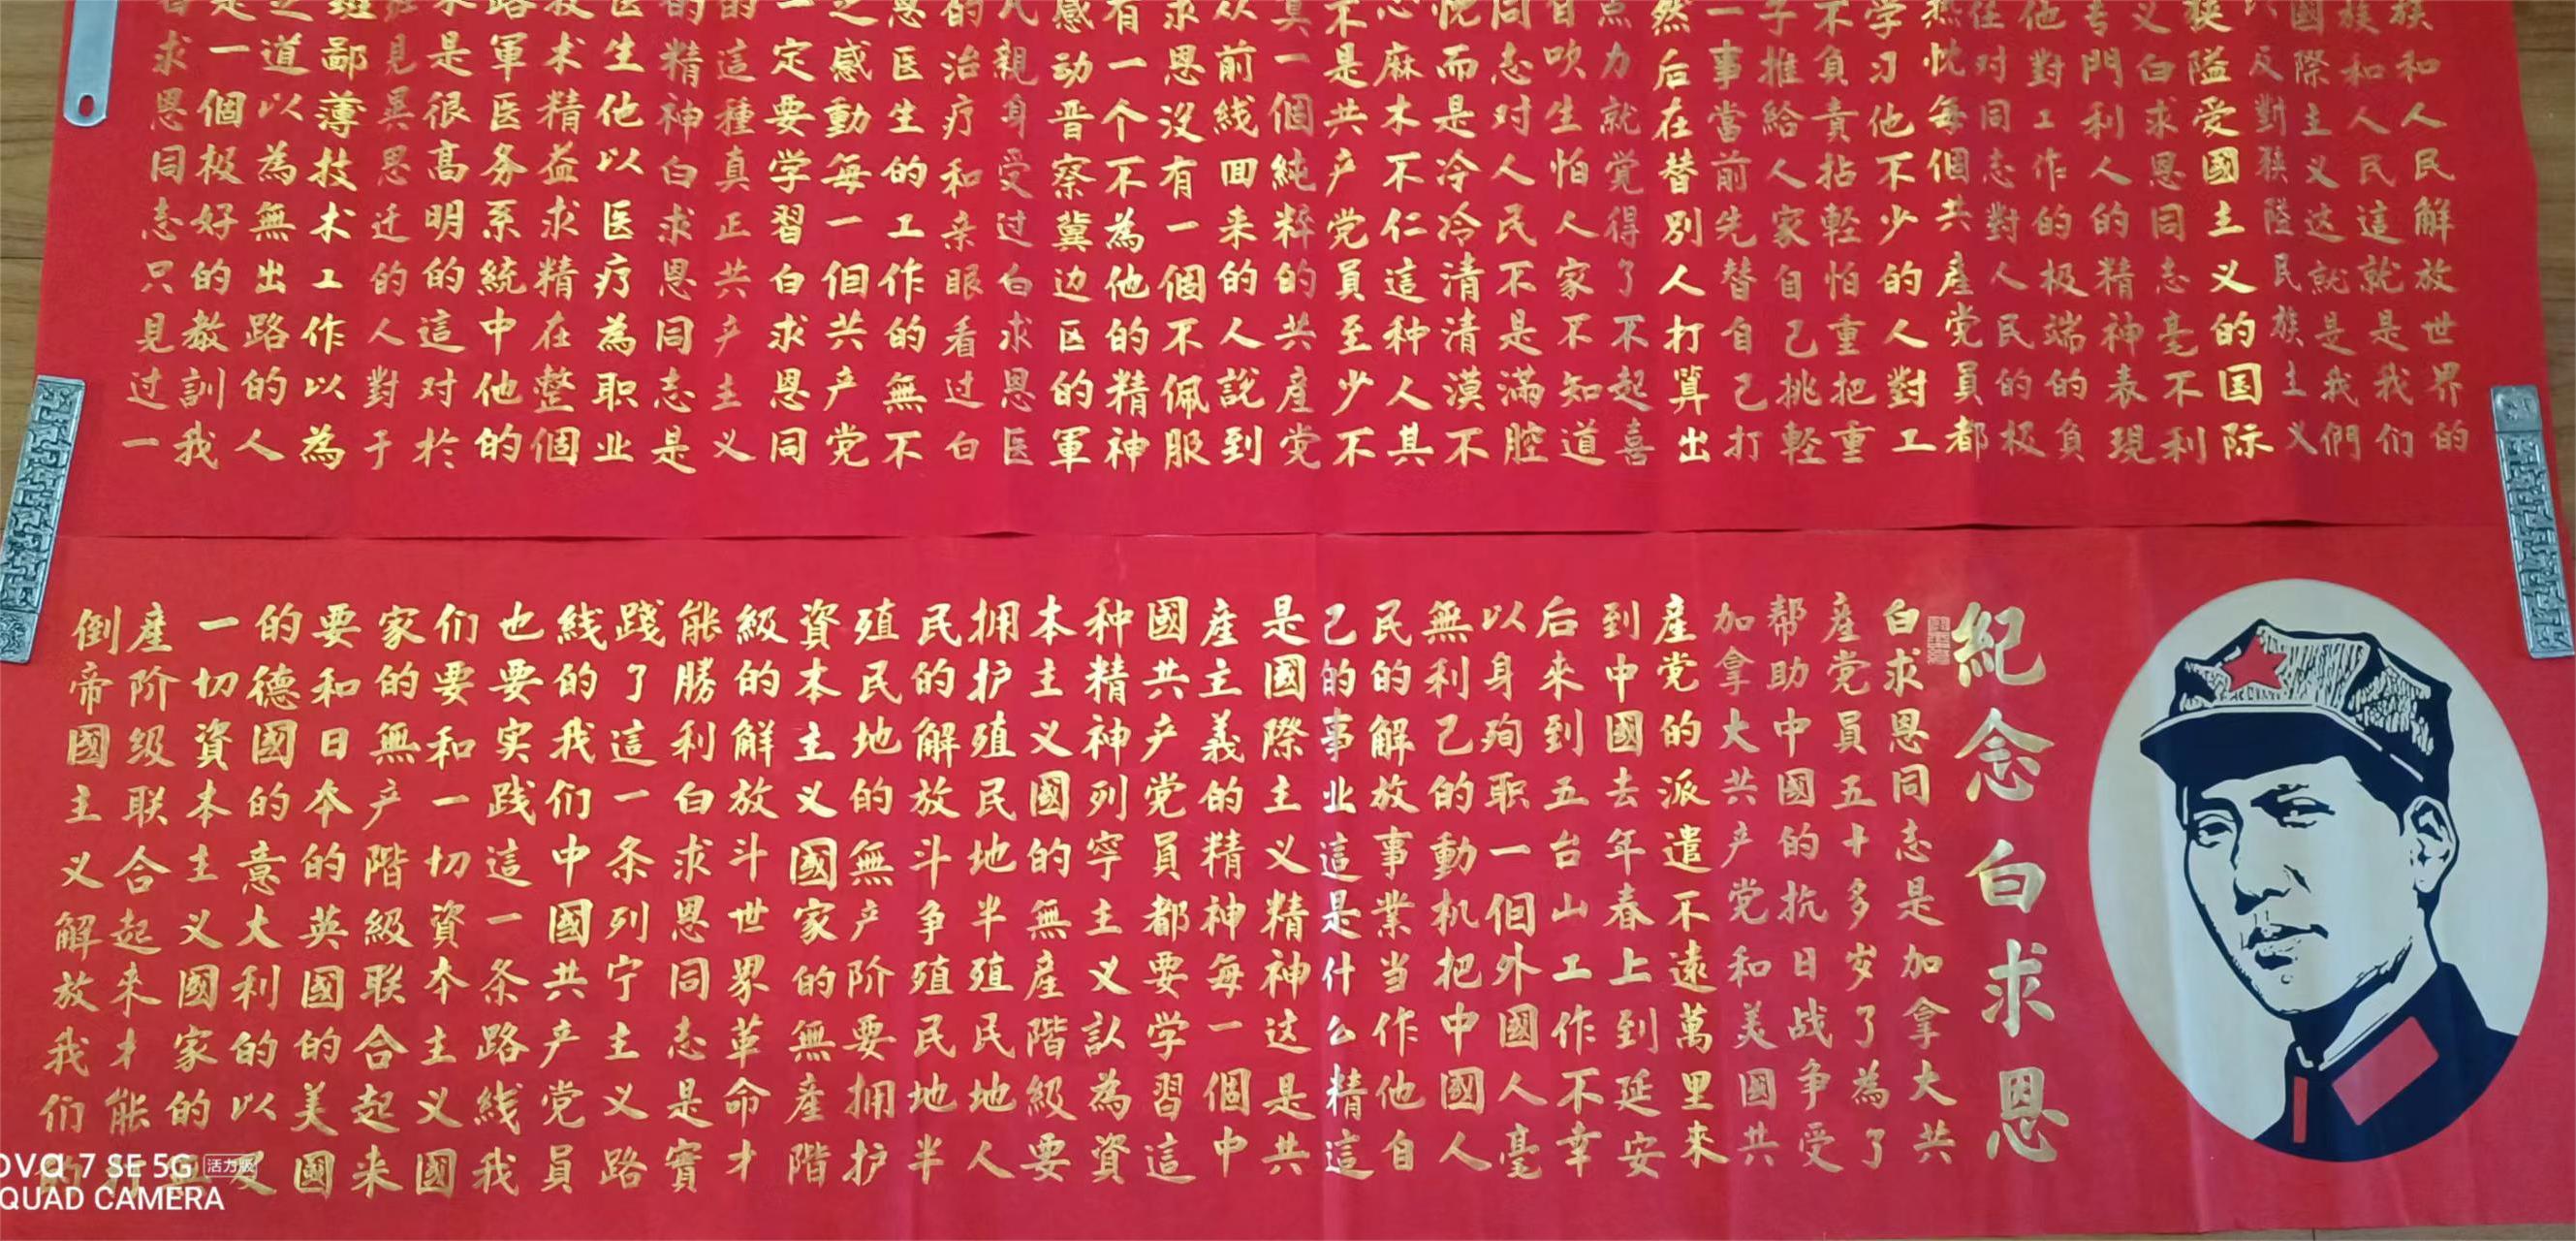 紀念白求恩
白求恩同志是加拿大共
産党員五十多岁了為了
帮助中國的抗日战争受
加拿大共产党和美國共
産党的派遣不遠萬里来
到中國去年春上到延安
后来到五台山工作不幸
以身殉职一個外國人毫
無利己的動机把中國人
民的解放事業当作他自
己的事业這是什么精這
是國際主义精神这是共
産主義的精神每一個中
國共产党員都要学習這
种精神列宁主义認為資
本主义國的無産階級要
拥护殖民地半殖民地人
民的解放斗争殖民地半
殖民地的無产阶要拥护
資本主义國家的無産階
級的解放斗世界革命才
能勝利白求恩同志是實
踐了這一条列宁主义路
线的我们中國共产党員
也要实践這一条路线我
们要和一切資本主义國
家的無产階級联合起来
要和日本的英國的美國
的德國的意大利的以及
一切資本主义國家的
産阶级联合起来才能
倒帝國主义解放我们
族和人民解放世界的
族和人民這就是我们
國際主义这就是我們
反對狭隘民族主义
狭隘受國主义的国际
义白求恩同志毫不利
专門利人的精神表現
他對工作的极端的負
任对同志對人民的极
热忱每個共産党員都
学习他不少的人對工
不負責拈軽怕重把重
子推給人家自己挑軽
一事當前先替自己打
然后在替别人打算出
点力就觉得了不起喜
自吹生怕人家不知道
同志对人民不是滿腔
忱而是冷冷清清漠不
心麻木不仁這种人其
不是共产党員至少不
真一個純粹的共産党
从前线回来的人說到
求恩没有一個不佩服
有一个不為他的精神
感动晋察冀边区的軍
凡親身受过白求恩医
的治疗和亲眼看过白
恩医生的工作的無不
之感動每一個共产党
一定要学習白求恩同
的這種真正共产主义
的精神白求恩同志是
医生他以医疗為职业
技术精益求精在整個
路軍医务系統中他的
术是很高明的這对於
見異思迁的人對于
班鄙薄技术工作以為
之道以為無出路的人
是一個极好的教訓我
求恩同志只見过一
ova 7 SE 5G 活力版
QUAD CAMERA